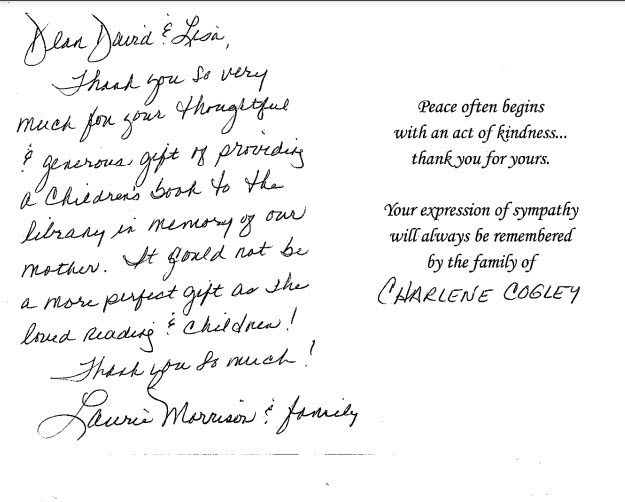 Dear David & Lisa,
Thank you so very
much for your thoughtful
& generous gift of providing
a children's book to the
library in memory of our
mother. It could not be
a more perfect gift as she
loved reading & children!
Thank you so much!
Laurie Morrison & family
Peace often begins
with an act of kindness...
thank you for yours.
Your expression of sympathy
will always be remembered
by the family of
CHARLENE COGLEY